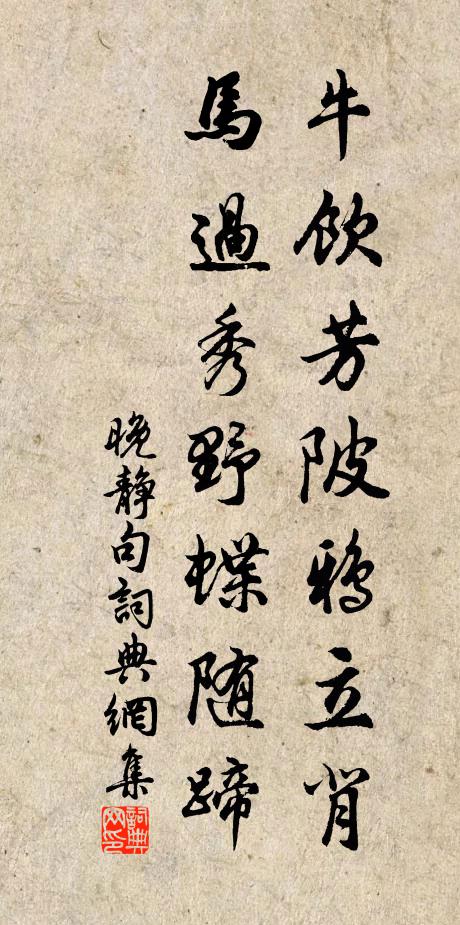 牛飲芳陂鴉立背
馬過秀野蝶随蹄
晚靜句詞典網集
詞典网印